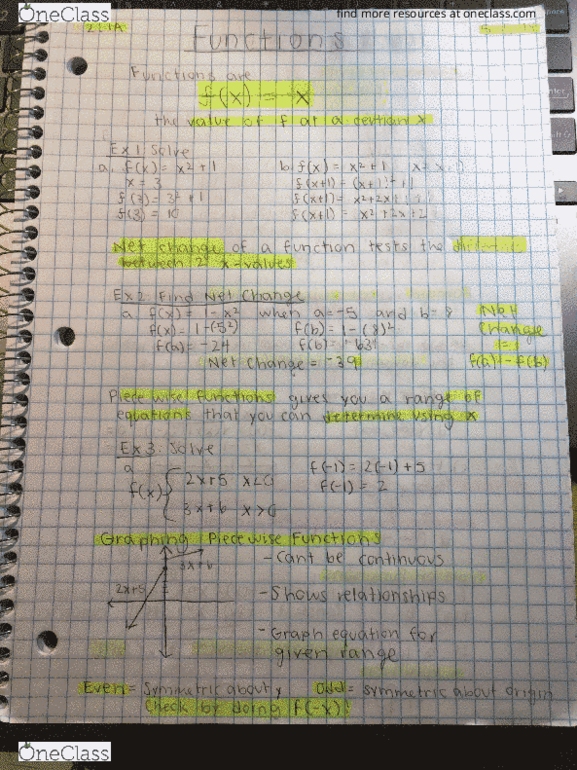 OneClass
find more resources at oneclass.com
2.1A
Functions
Functions are
f(x) = x
the value of f at a certian x
Ex 1: Solve
a. f(x) = x² + 1
x = 3
f(3) = 3² + 1
f(3) = 10
b. f(x) = x² + 1
f(x+1) = (x+1)² + 1
f(x+1) = x²+2x+
f(x+1) = x²+2x+2
Net change of a function tests the
between 2 x-values
Ex 2: Find Net Change
a. f(x) = 1 - x² when a=-5 and b= 8
f(x) = 1-(5²) f(b) = 1-(8)²
f(a) = -24 f(b) = -63
Net Change = -39
Net
Change
=
f(a) - f(b)
Piecewise functions gives you a range of
equations that you can determine using x
Ex 3: Solve
a.
f(x) { 2x+5 x<0
3x+6 x>0
f(-1) = 2(-1)+5
f(-1) = 2
Graphing Piecewise Functions
3x+6
2x+5
- Cant be continuous
- Shows relationships
- Graph equation for
given range
Even = Symmetric about y Odd = symmetric about origin
Check by doing f(-x)!
OneClass